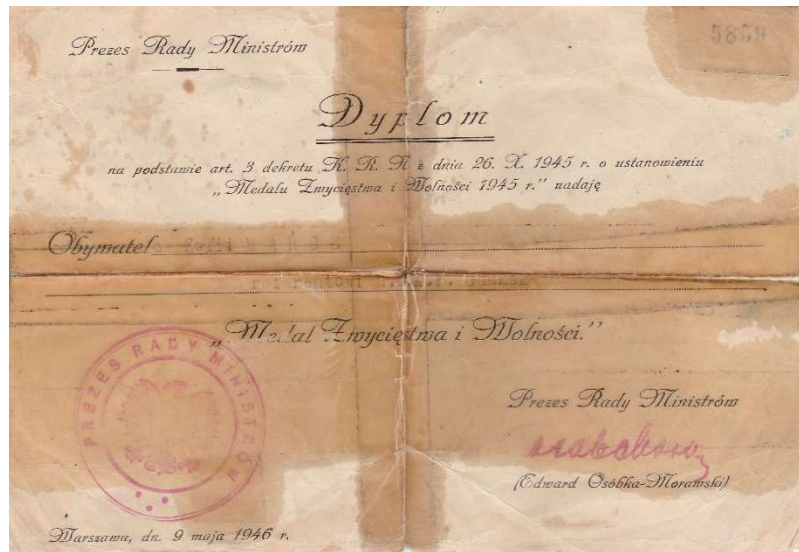 Prezes Rady Ministrów
5859
Dyplom
na podstawie art. 3 dekretu K. R. N z dnia 26. X. 1945 r. o ustanowieniu
„Medalu Zwycięstwa i Wolności 1945 r.” nadaję
Obywatel
referentowi
„Medal Zwycięstwa i Wolności.”
PREZES RADY MINISTRÓW
Prezes Rady Ministrów
(Edward Osóbka-Morawski)
Warszawa, dn. 9 maja 1946 r.